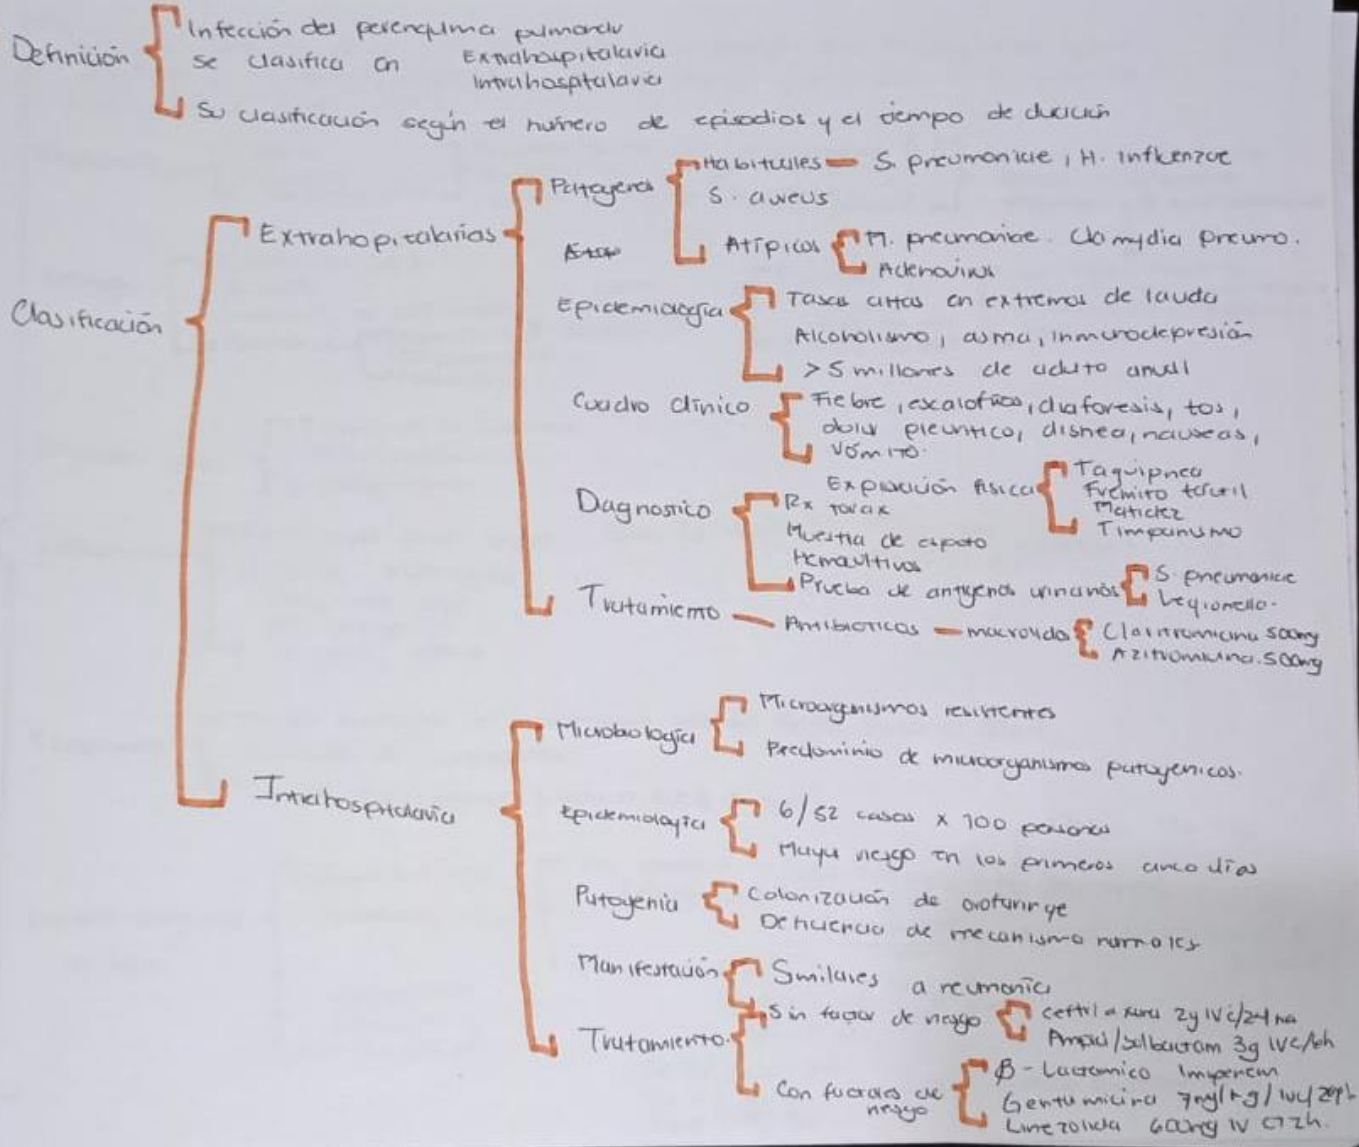 Definición
Infección del perenquima pulmonar
se clasifica en Extrahospitalaria
Intrahospitalaria
Su clasificación según el número de episodios y el tiempo de duración
Clasificación
Extrahopitalarias
Patogenos
Habituales — S. pneumoniae, H. Influenzae
S. aureus
Atípicos
M. pneumoniae. Clamydia pneumo.
Adenovirus
Epidemiología
Tasas altas en extremos de la vida
Alcoholismo, asma, inmunodepresión
> 5 millones de adulto anual
Cuadro clínico
Fiebre, escalofríos, diaforesis, tos,
dolor pleuritico, disnea, nauseas,
vómito.
Dagnostico
Exploración física
Taquipnea
Fremito tactil
Matidez
Timpanismo
Rx torax
Muestra de esputo
Hemocultivos
Prueba de antígenos urinarios
S. pneumoniae
Legionella.
Tratamiento — Antibioticos — macrolido
Claritromicina 500mg
Azitromicina. 500mg
Intrahospitalaria
Microbiología
Microorganismos resistentes
Predominio de microorganismos patogenicos.
Epidemiología
6/52 casos x 100 personas
Mayor riesgo en los primeros cinco días
Patogenia
Colonización de orofaringe
Deficiencia de mecanismo normales
Manifestación
Similares a neumonía
Tratamiento.
Sin factor de riesgo
ceftriaxona 2g IV c/24 hr
Ampici/sulbactam 3g IV c/6h
Con factores de
riesgo
B-Lactamico Imipenem
Gentamicina 7mg/kg/ IV c/24h
Linezolida 600mg IV c12h.